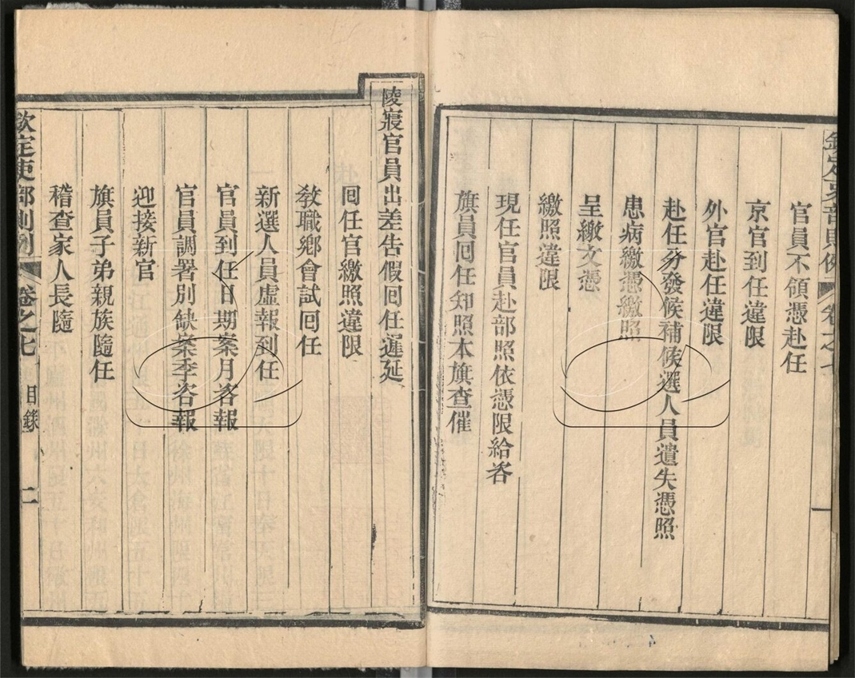 欽定吏部則例 卷之七
官員不領憑赴任
京官到任違限
外官赴任違限
赴任分發候補候選人員遺失憑照
患病繳憑繳照
呈繳文憑
繳照違限
現任官員赴部照依憑限給咨
旗員囘任知照本旗查催
陵寢官員出差告假囘任遲延
囘任官繳照違限
敎職鄉會試囘任
新選人員虛報到任
官員到任日期案月咨報
官員調署別缺案季咨報
迎接新官
旗員子弟親族隨任
稽查家人長隨
欽定吏部則例 卷之七 目錄 二